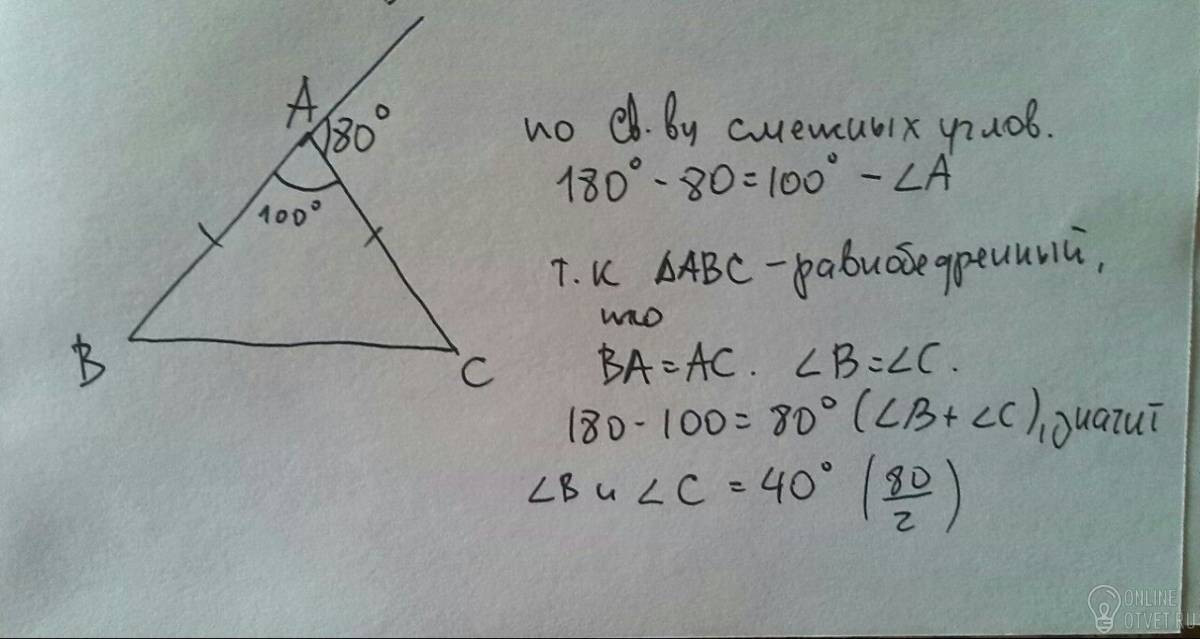 A
80°
100°
B
C
по св. ву смежных углов.
180° - 80 = 100° - ∠A
т. к ΔABC - равнобедренный,
то
BA = AC. ∠B = ∠C.
180 - 100 = 80° (∠B + ∠C), значит
∠B и ∠C = 40° (80/2)
ONLINE
OTVET.RU